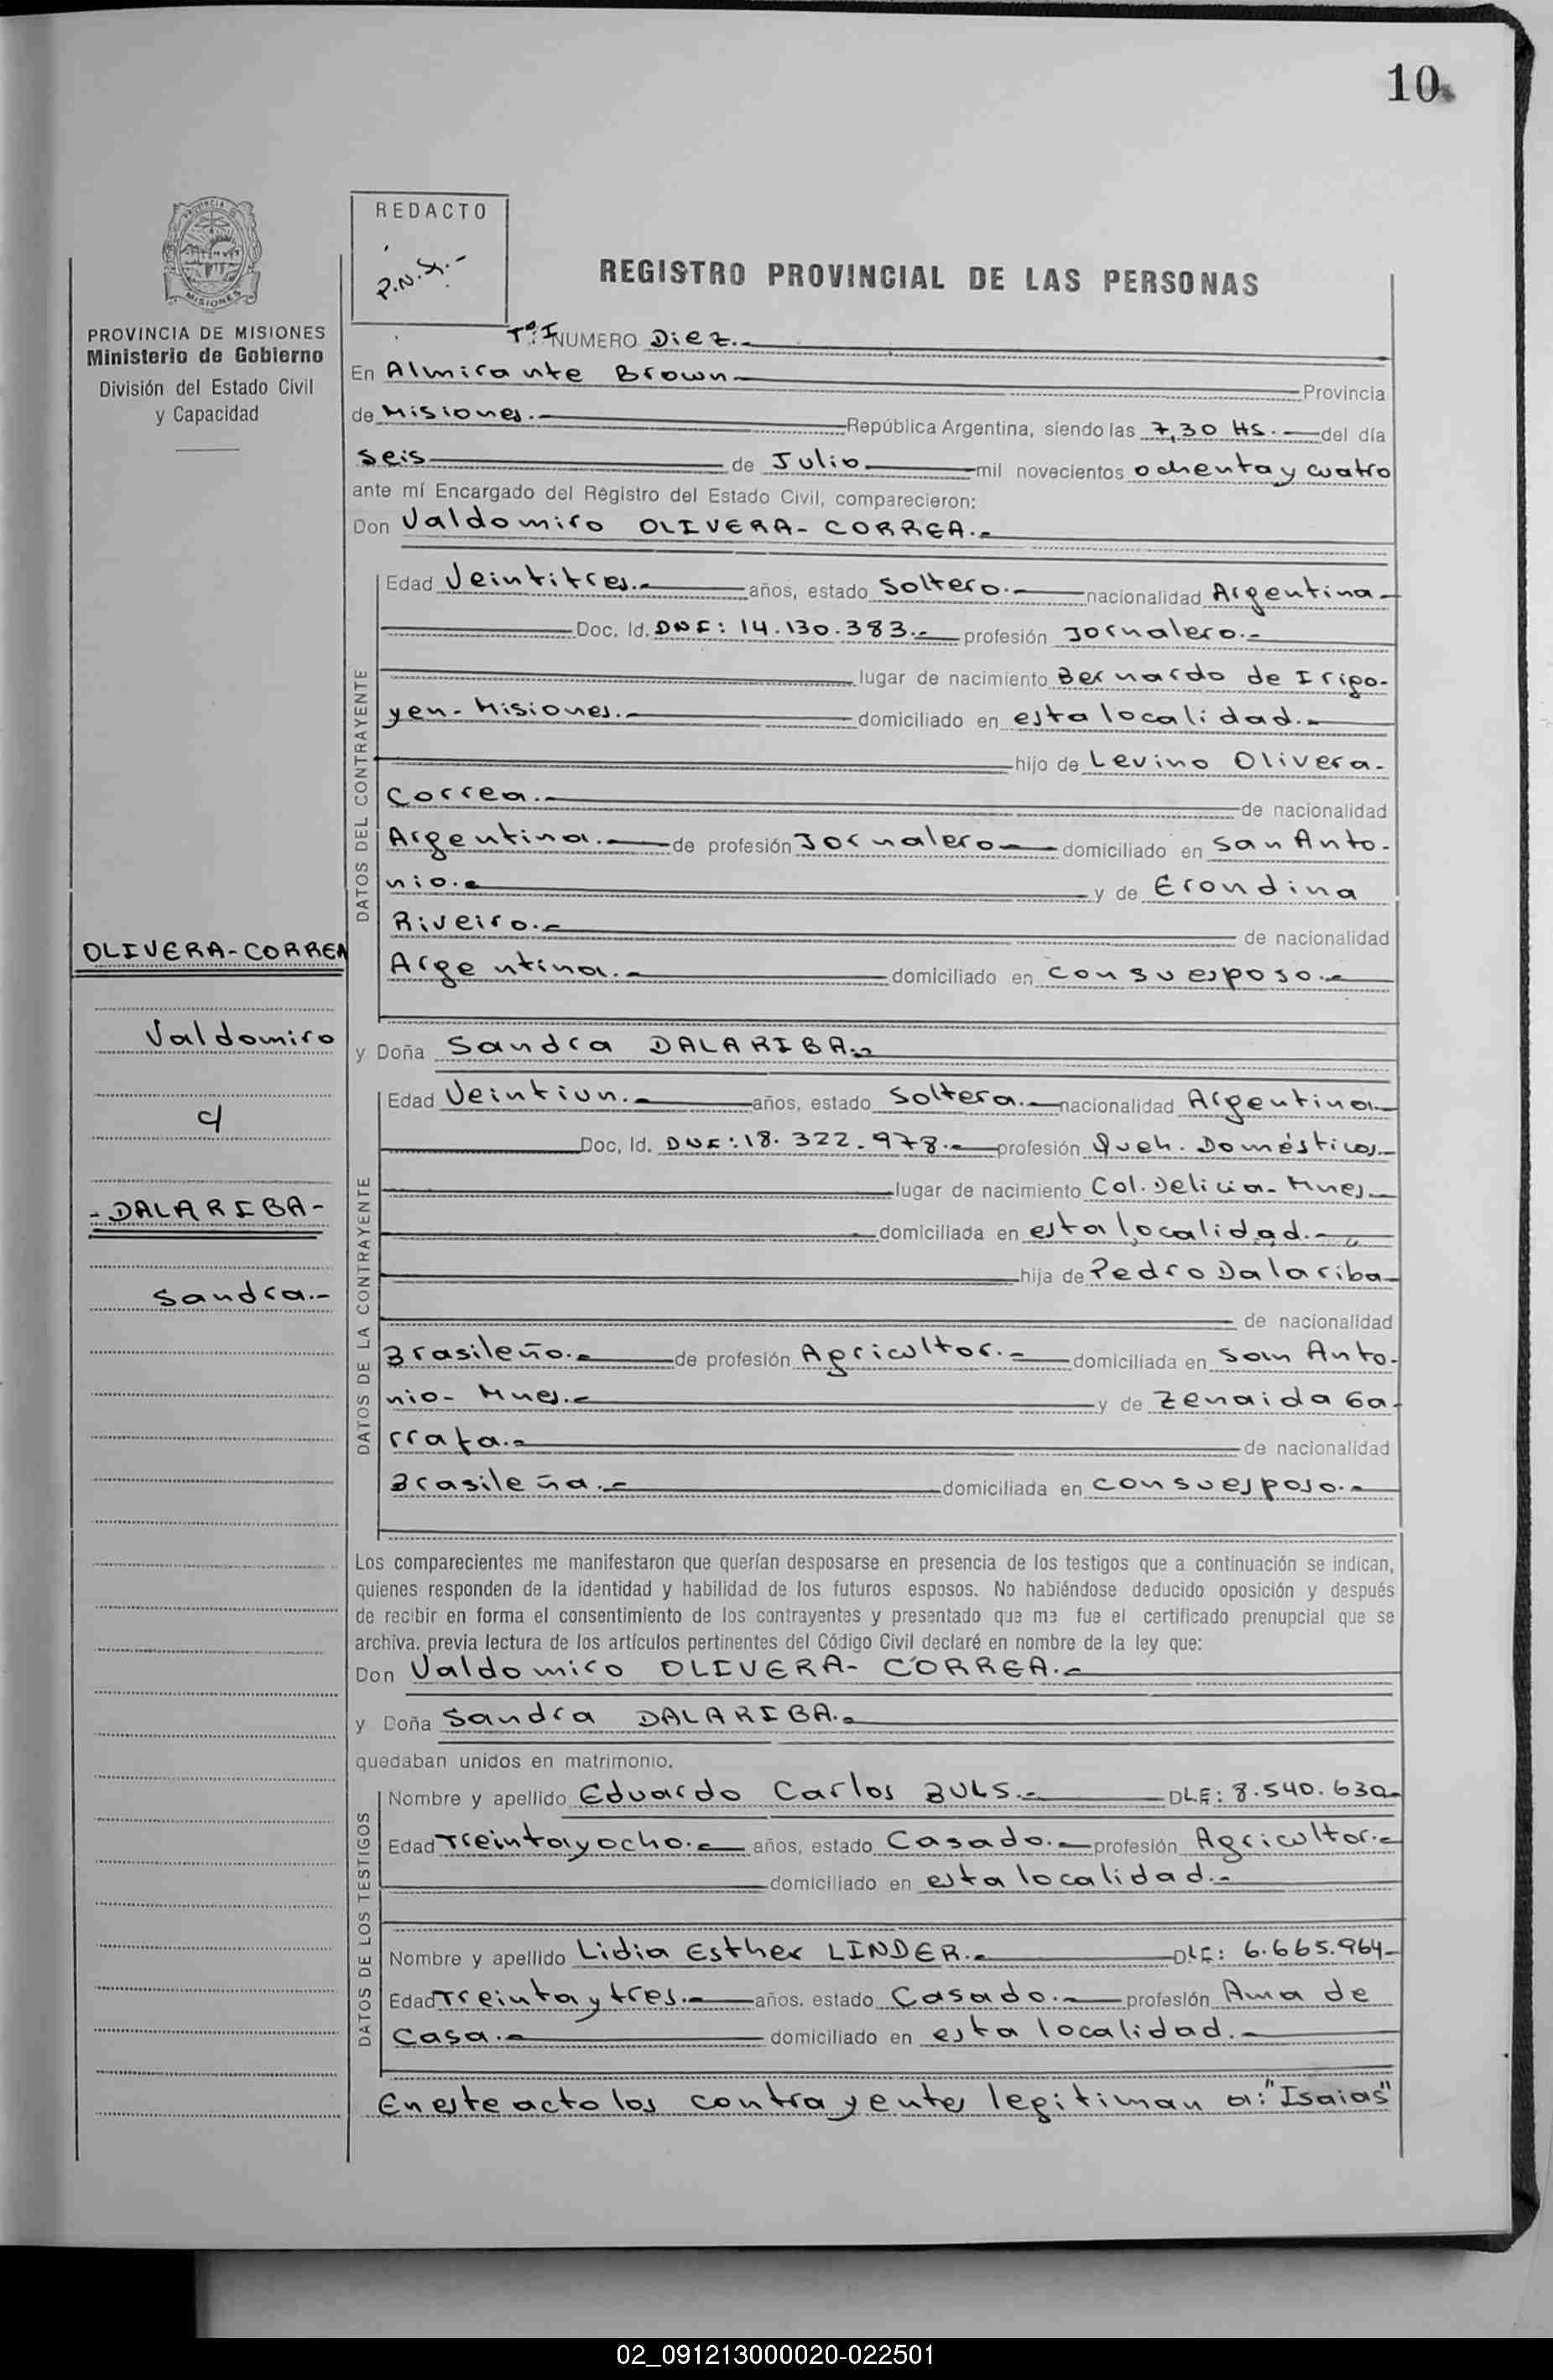 10
REDACTO
P.N.
PROVINCIA DE MISIONES
Ministerio de Gobierno
División del Estado Civil
y Capacidad
OLIVERA-CORREA
Valdomiro
c/
-DALARIBA-
Sandra.-
REGISTRO PROVINCIAL DE LAS PERSONAS
Tº: I NUMERO Diez.-
En Almirante Brown Provincia
de Misiones.- República Argentina, siendo las 7,30 Hs.- del día
seis de Julio mil novecientos ochenta y cuatro
ante mí Encargado del Régistro del Estado Civil, comparecieron:
Don Valdomiro OLIVERA-CORREA.-
DATOS DEL CONTRAYENTE
Edad Veintitres.- años, estado Soltero.- nacionalidad Argentina-
Doc. Id. DNI: 14.130.383.- profesión Jornalero.-
lugar de nacimiento Bernardo de Irigo-
yen-Misiones.- domiciliado en esta localidad.-
hijo de Levino Olivera-
Correa.- de nacionalidad
Argentina.- de profesión Jornalero- domiciliado en San Anto-
nio.- y de Erondina
Riveiro.- de nacionalidad
Argentina.- domiciliado en con su esposo.-
y Doña Sandra DALARIBA.-
DATOS DE LA CONTRAYENTE
Edad Veintiun.- años, estado Soltera.- nacionalidad Argentina-
Doc. Id. DNI: 18.322.978.- profesión Queh. Domésticos-
lugar de nacimiento Col. Delicia-Mnes-
domiciliada en esta localidad.-
hija de Pedro Dalariba-
de nacionalidad
Brasileño.- de profesión Agricultor.- domiciliada en San Anto-
nio- Mnes.- y de Zenaida Ga-
rrafa.- de nacionalidad
Brasileña.- domiciliada en con su esposo.-
Los comparecientes me manifestaron que querían desposarse en presencia de los testigos que a continuación se indican,
quienes responden de la identidad y habilidad de los futuros esposos. No habiéndose deducido oposición y después
de recibir en forma el consentimiento de los contrayentes y presentado que me fue el certificado prenupcial que se
archiva. previa lectura de los artículos pertinentes del Código Civil declaré en nombre de la ley que:
Don Valdomiro OLIVERA- CORREA.-
y Doña Sandra DALARIBA.-
quedaban unidos en matrimonio.
DATOS DE LOS TESTIGOS
Nombre y apellido Eduardo Carlos BULS.- DLE: 8.540.630-
Edad Treinta y ocho.- años, estado Casado.- profesión Agricultor.-
domiciliado en esta localidad.-
Nombre y apellido Lidia Esther LINDER.- DLE: 6.665.964-
Edad Treinta y tres.- años. estado Casado.- profesión Ama de
Casa.- domiciliado en esta localidad.-
En este acto los contrayentes legitiman a: "Isaias"
02_091213000020-022501